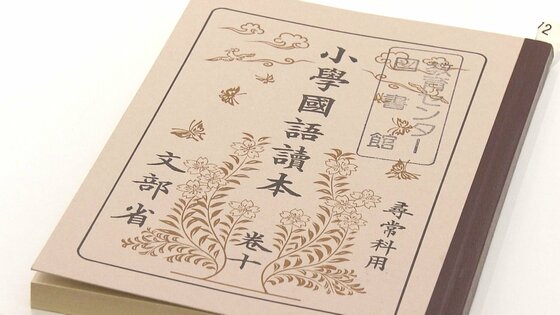 小學國語讀本
卷十
尋常科用
文部省
教育センター
図書館
12